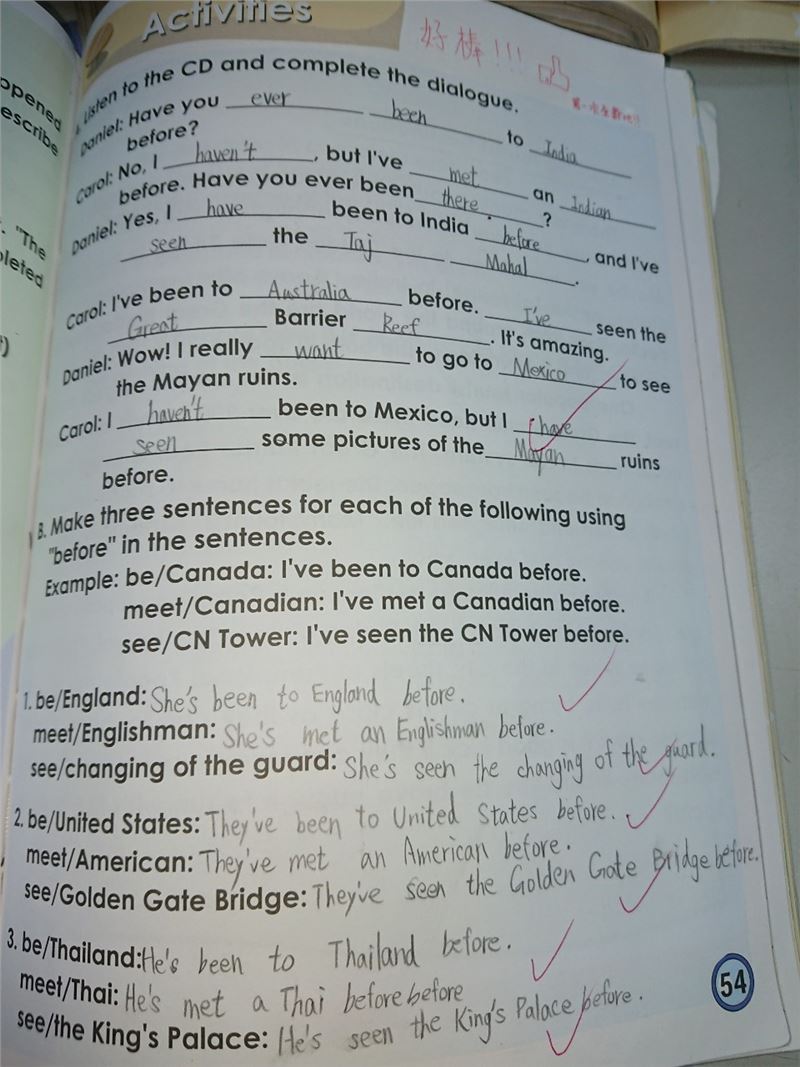 Activities
好棒!!!
Listen to the CD and complete the dialogue.
Daniel: Have you ever been to India
before?
Carol: No, I haven't, but I've met an Indian
before. Have you ever been there?
Daniel: Yes, I have been to India before, and I've
seen the Taj Mahal.
Carol: I've been to Australia before. I've seen the
Great Barrier Reef. It's amazing.
Daniel: Wow! I really want to go to Mexico to see
the Mayan ruins.
Carol: I haven't been to Mexico, but I have
seen some pictures of the Mayan ruins
before.
B. Make three sentences for each of the following using
"before" in the sentences.
Example: be/Canada: I've been to Canada before.
meet/Canadian: I've met a Canadian before.
see/CN Tower: I've seen the CN Tower before.
1. be/England: She's been to England before.
meet/Englishman: She's met an Englishman before.
see/changing of the guard: She's seen the changing of the guard.
2. be/United States: They've been to United States before.
meet/American: They've met an American before.
see/Golden Gate Bridge: They've seen the Golden Gate Bridge before.
3. be/Thailand: He's been to Thailand before.
meet/Thai: He's met a Thai before before
see/the King's Palace: He's seen the King's Palace before.
54
opened
escribe
"The
pleted